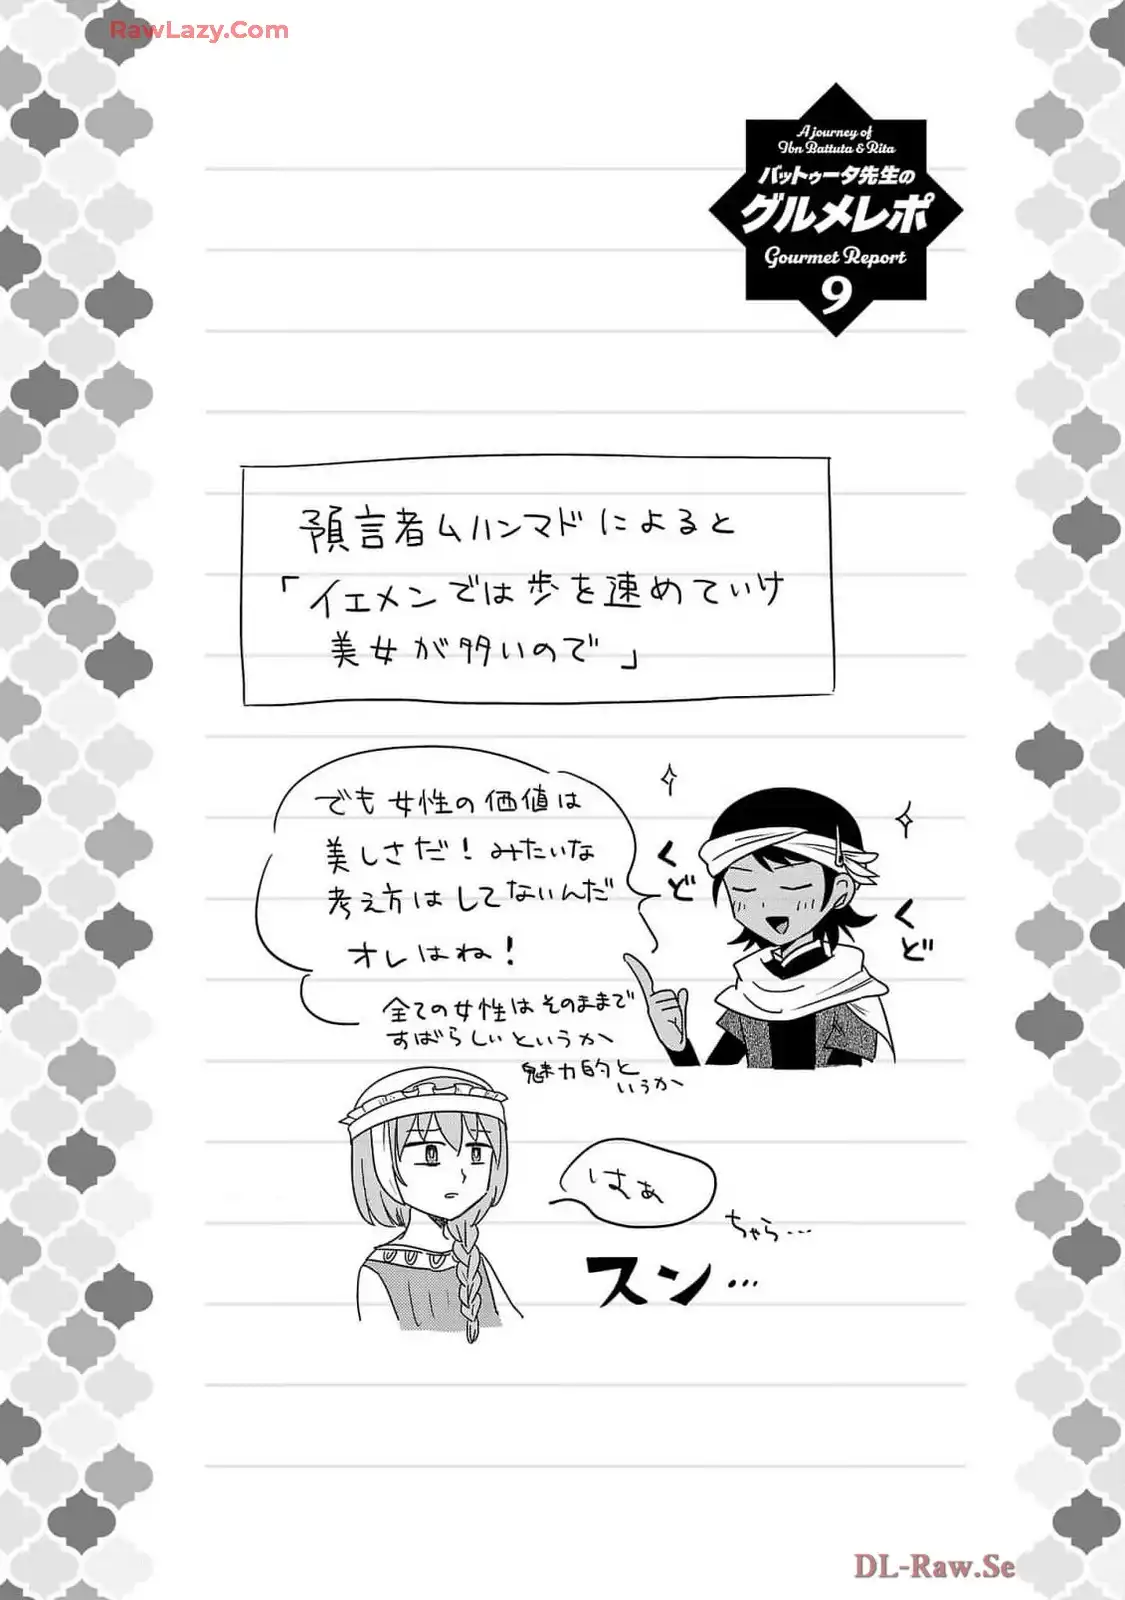 RawLazy.Com
A journey of
Ibn Battuta & Rita
バットゥータ先生の
グルメレポ
Gourmet Report
9
預言者ムハンマドによると
「イエメンでは歩を速めていけ
美女が多いので」
でも女性の価値は
美しさだ!みたいな
考え方はしてないんだ
オレはね!
くど
くど
全ての女性はそのままで
すばらしいというか
魅力的と
いうか
はぁ
ちゃら…
スン…
DL-Raw.Se